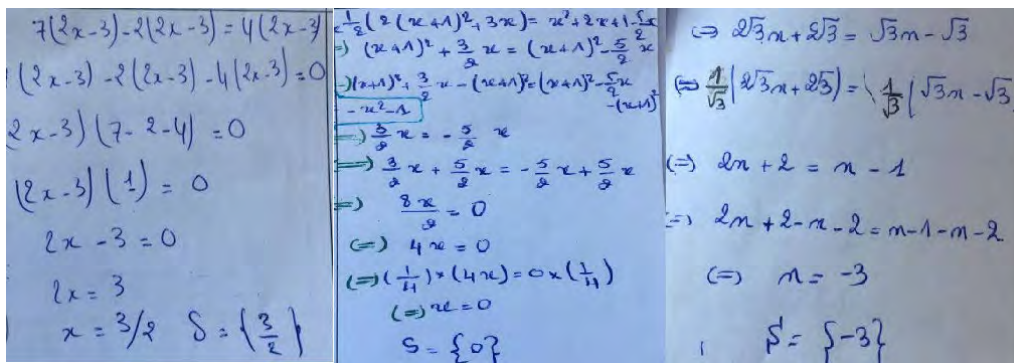 7(2x-3)-2(2x-3)=4(2x-3)
(2x-3)-2(2x-3)-4(2x-3)=0
2x-3)(7-2-4)=0
(2x-3)(1)=0
2x-3=0
2x=3
x=3/2 S={3/2}
1/2(2(x+1)²+3x)= x²+2x+1-5/2x
=) (x+1)²+3/2 x = (x+1)²-5/2 x
=)(x+1)²+3/2 x-(x+1)²=(x+1)²-5/2x
-(x+1)²
-x²-1
=) 3/2 x = -5/2 x
=) 3/2 x + 5/2 x = -5/2 x + 5/2 x
=) 8x/2 = 0
(=) 4x=0
(=)(1/4)×(4x)=0×(1/4)
(=) x=0
S={0}
(=) 2√3n+2√3=√3n-√3
(=) 1/√3(2√3n+2√3)=1/√3(√3n-√3
(=) 2n+2=n-1
(=) 2n+2-n-2=n-1-n-2
(=) n=-3
S={-3}